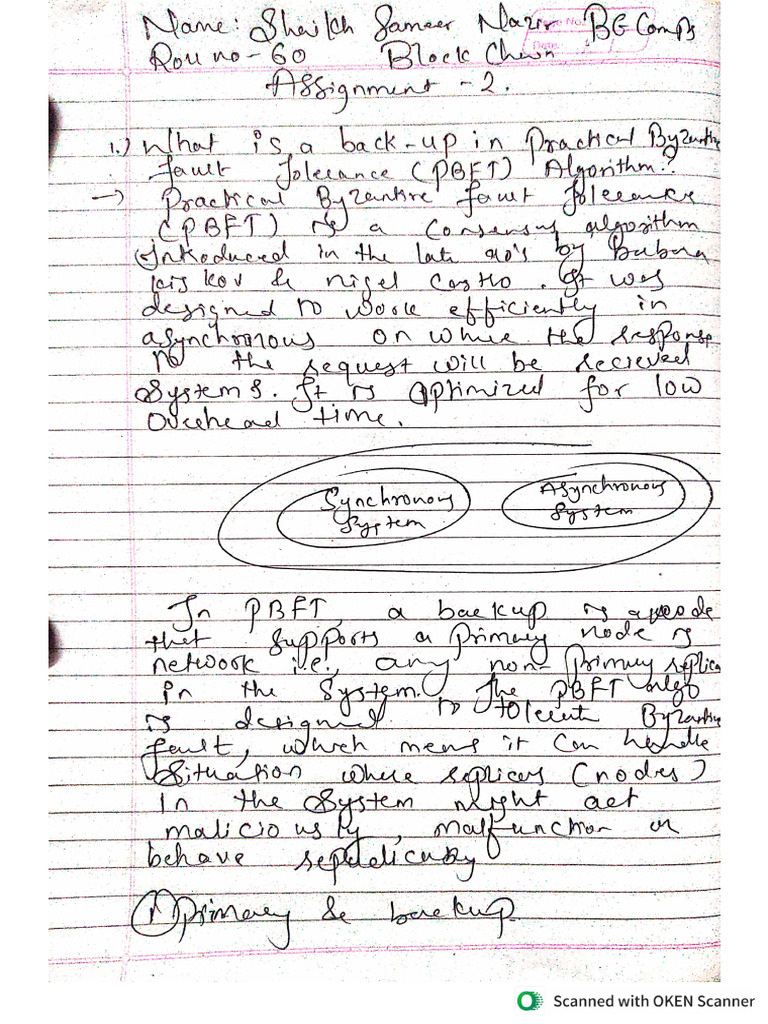 Name: Shaikh Sameer Nazir BE Comps
Roll no - 60 Block Chain
Assignment - 2.
1.) What is a back-up in Practical Byzantine
Fault Tolerance (PBFT) Algorithm?
→ Practical Byzantine Fault Tolerance
(PBFT) is a consensus algorithm
introduced in the late 90's by Barbara
Liskov & Nigel Castro. It was
designed to work efficiently in
asynchronous on where the response
to the request will be recieved
systems. It is optimized for low
overhead time.
Synchronous
System
Asynchronous
System
In PBFT, a backup is a node
that supports a primary node is
network i.e., any non-primary replica
in the system. The PBFT algo
is designed to tolerate Byzantine
fault, which means it can handle
situation where replicas (nodes)
in the system might act
maliciously, malfunction or
behave
1) Primary & backup
Scanned with OKEN Scanner